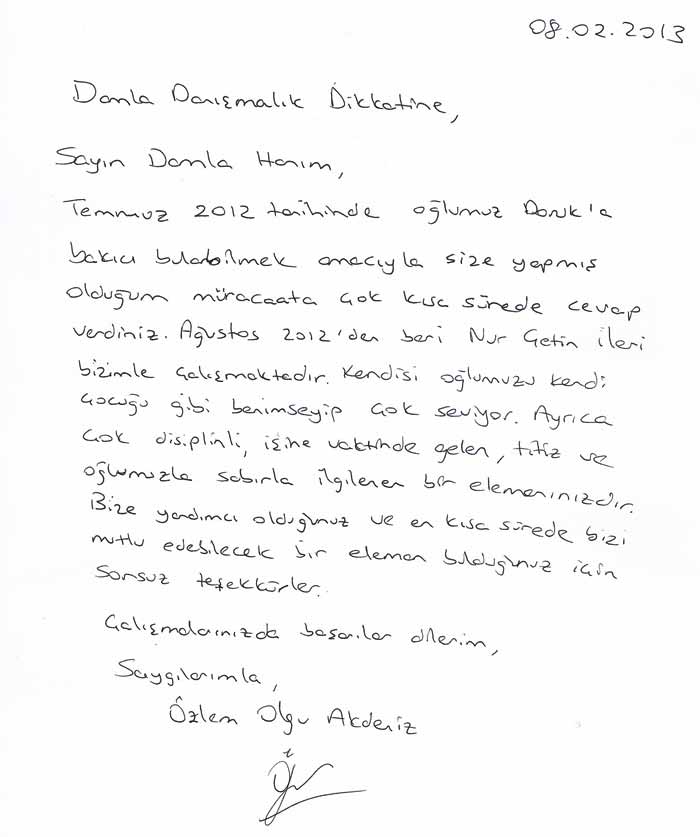 08.02.2013
Damla Danışmalık Dikkatine,
Sayın Damla Hanım,
Temmuz 2012 tarihinde oğlumuz Doruk'a
bakıcı bulabilmek amacıyla size yapmış
olduğum müracaata çok kısa sürede cevap
verdiniz. Ağustos 2012'den beri Nur Çetin ileri
bizimle çalışmaktadır. Kendisi oğlumuzu kendi
çocuğu gibi benimseyip çok seviyor. Ayrıca
çok disiplinli, işine vaktinde gelen, titiz ve
oğlumuzla sabırla ilgilenen bir elemanınızdır.
Bize yardımcı olduğunuz ve en kısa sürede bizi
mutlu edebilecek bir eleman bulduğunuz için
sonsuz teşekkürler.
Çalışmalarınızda başarılar dilerim,
Saygılarımla,
Özlem Olgu Akdeniz